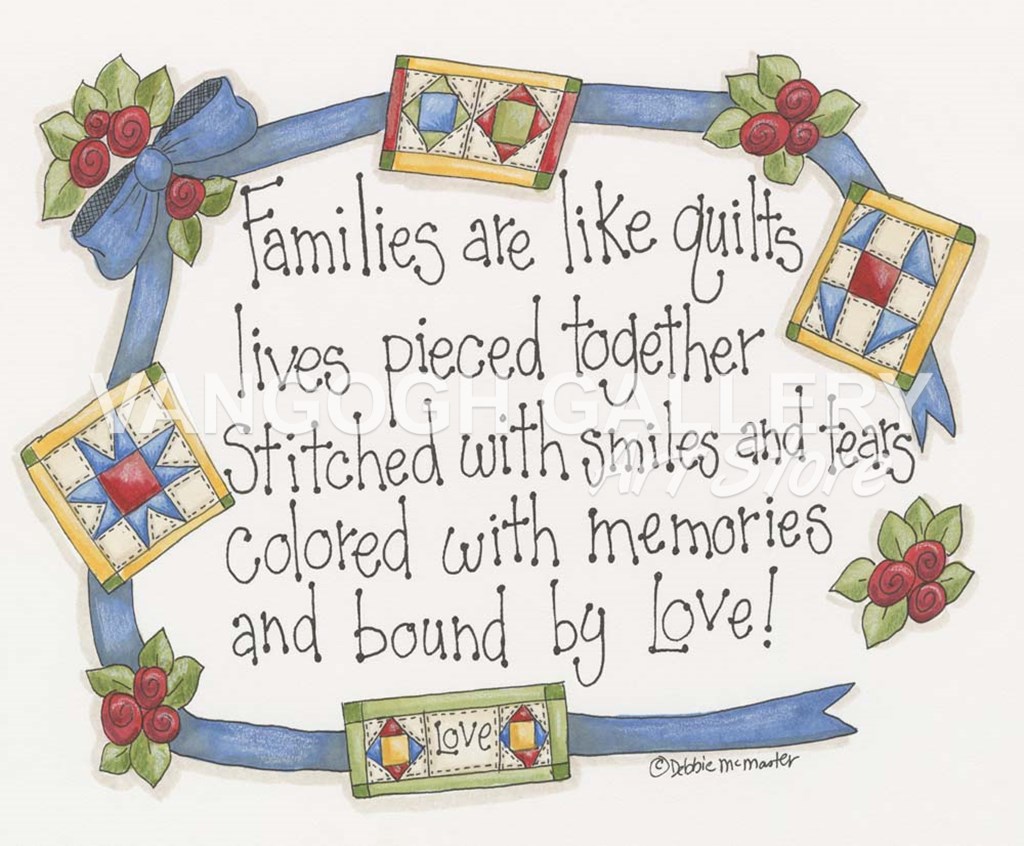 Families are like quilts
lives pieced together
Stitched with smiles and tears
colored with memories
and bound by Love!
Love
©Debbie McMaster
VANGOGH GALLERY
Art Store